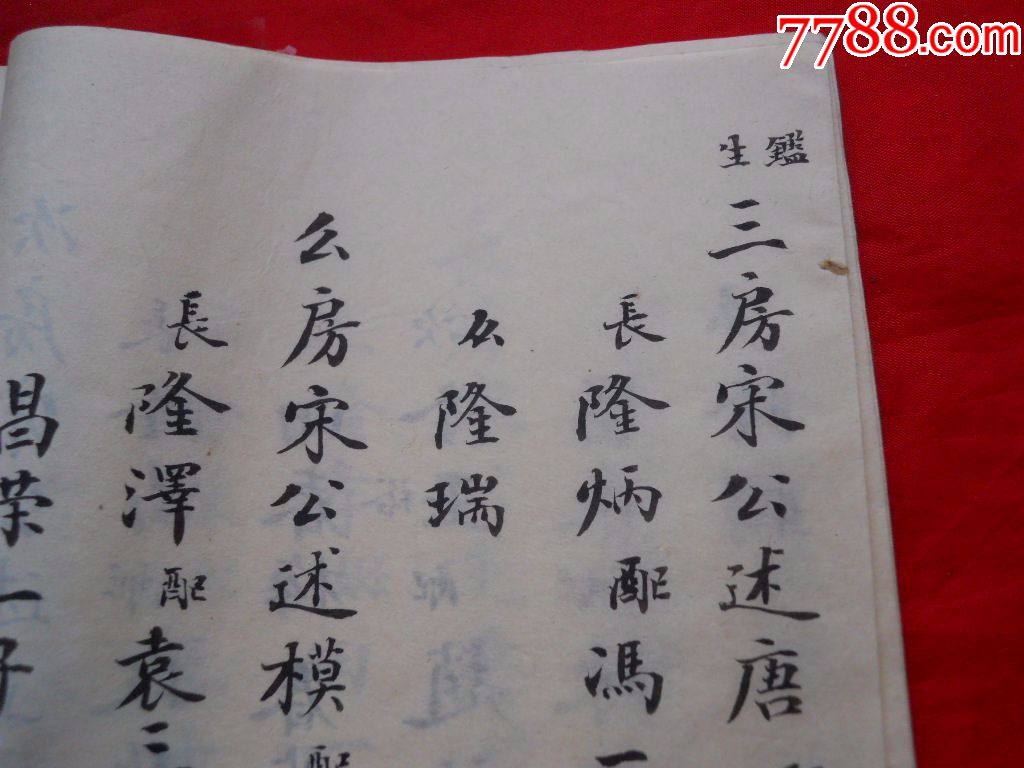 7788.com
鑑生
三房宋公述唐
長隆炳配馮一
幺隆瑞
幺房宋公述模配
長隆澤配袁二
昌荣一子